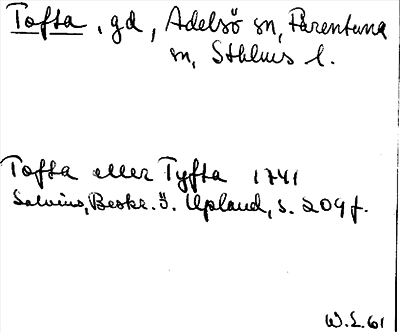 Tofta, gd, Adelsö sn, Färentuna
sn, Sthlms l.
Tofta eller Tyfta 1741
Salvius, Beskr. ö. Upland, s. 204 f.
W.L. 61